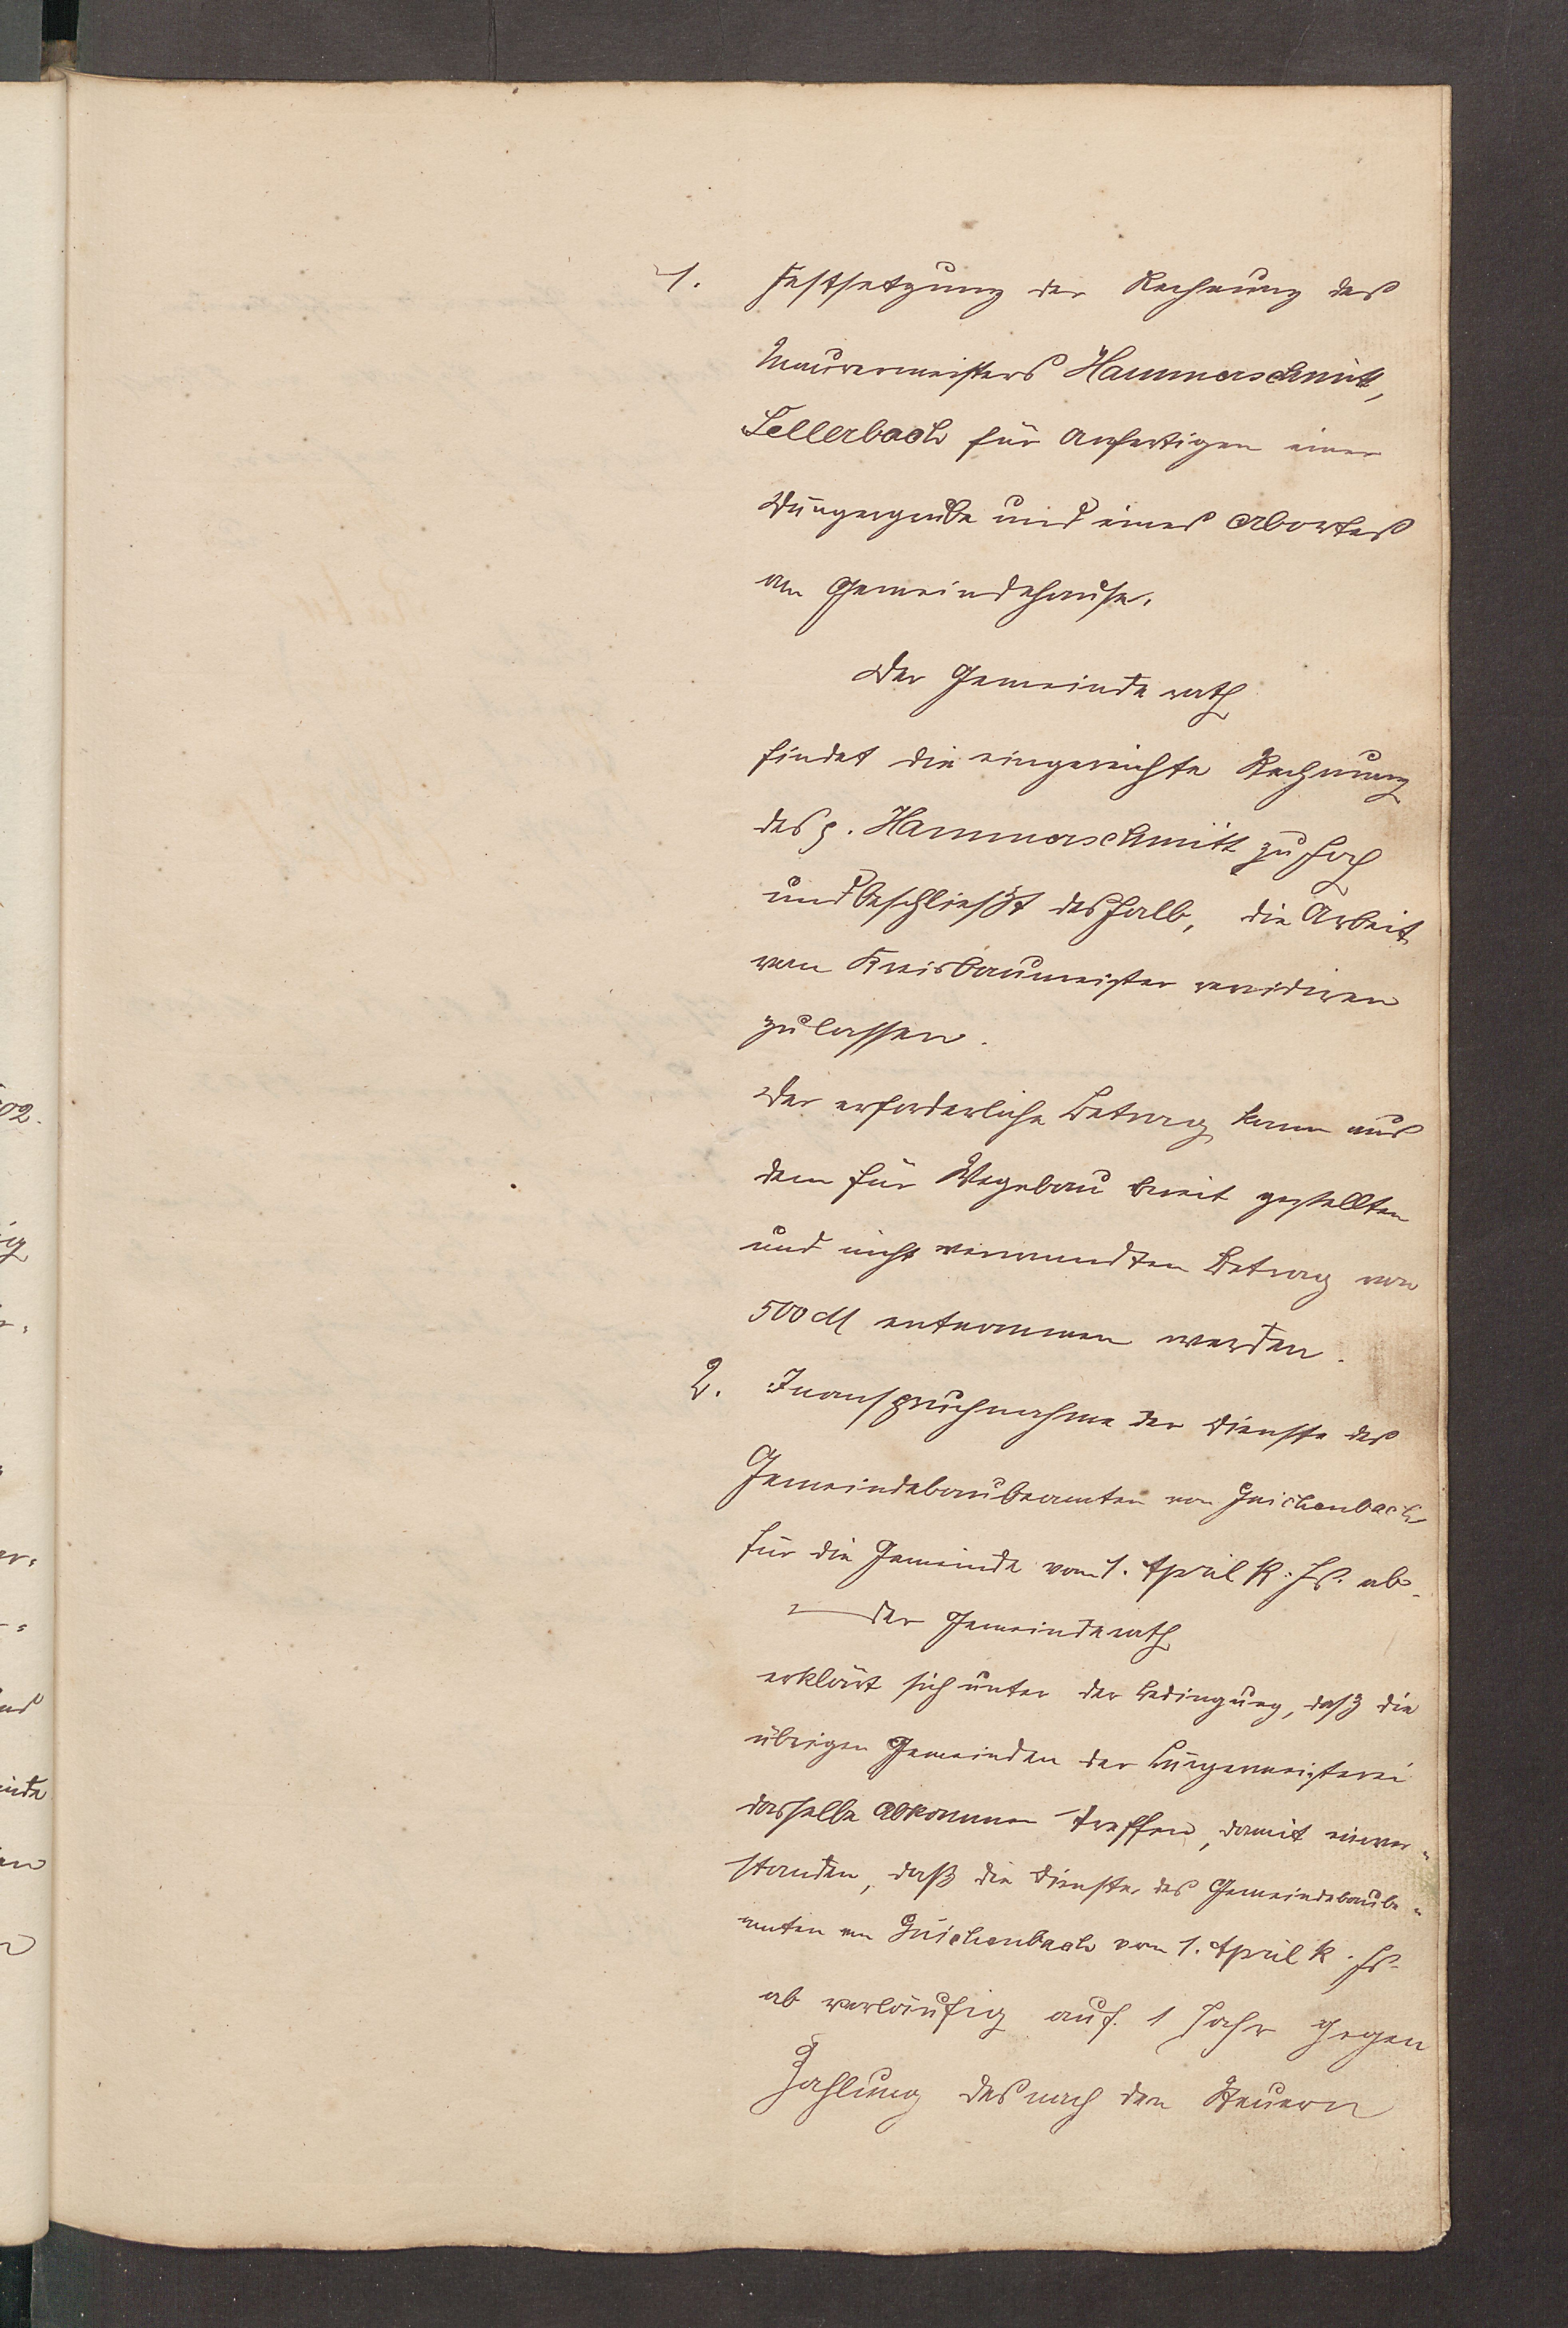 1. Festsetzung der Rechnung des
Maurermeisters Hammerschmitt,
Sellerbach für Anfertigen einer
Düngergrube und eines Abortes
am Gemeindehause.
Der Gemeinderath
findet die eingereichte Rechnung
des p. Hammerschmitt zu hoch
und beschließt deshalb, die Arbeit
vom Kreisbaumeister revidiren
zu lassen.
Der erforderliche Betrag kann aus
dem für Wegebau bereit gestellten
und nicht verwendten Betrag von
500 M entnommen werden.
2. Inanspruchnahme der Dienste des
Gemeindebaubeamten von Güichenbach
für die Gemeinde vom 1. April k. Js. ab.
Der Gemeinderath
erklärt sich unter der Bedingung, daß die
übrigen Gemeinden der Bürgermeisterei
dasselbe Abkommen treffen, damit einver-
standen, daß die Dienste des Gemeindebaube-
amten von Güichenbach vom 1. April k. Js.
ab vorläufig auf 1 Jahr gegen
Zahlung des nach den Steuern